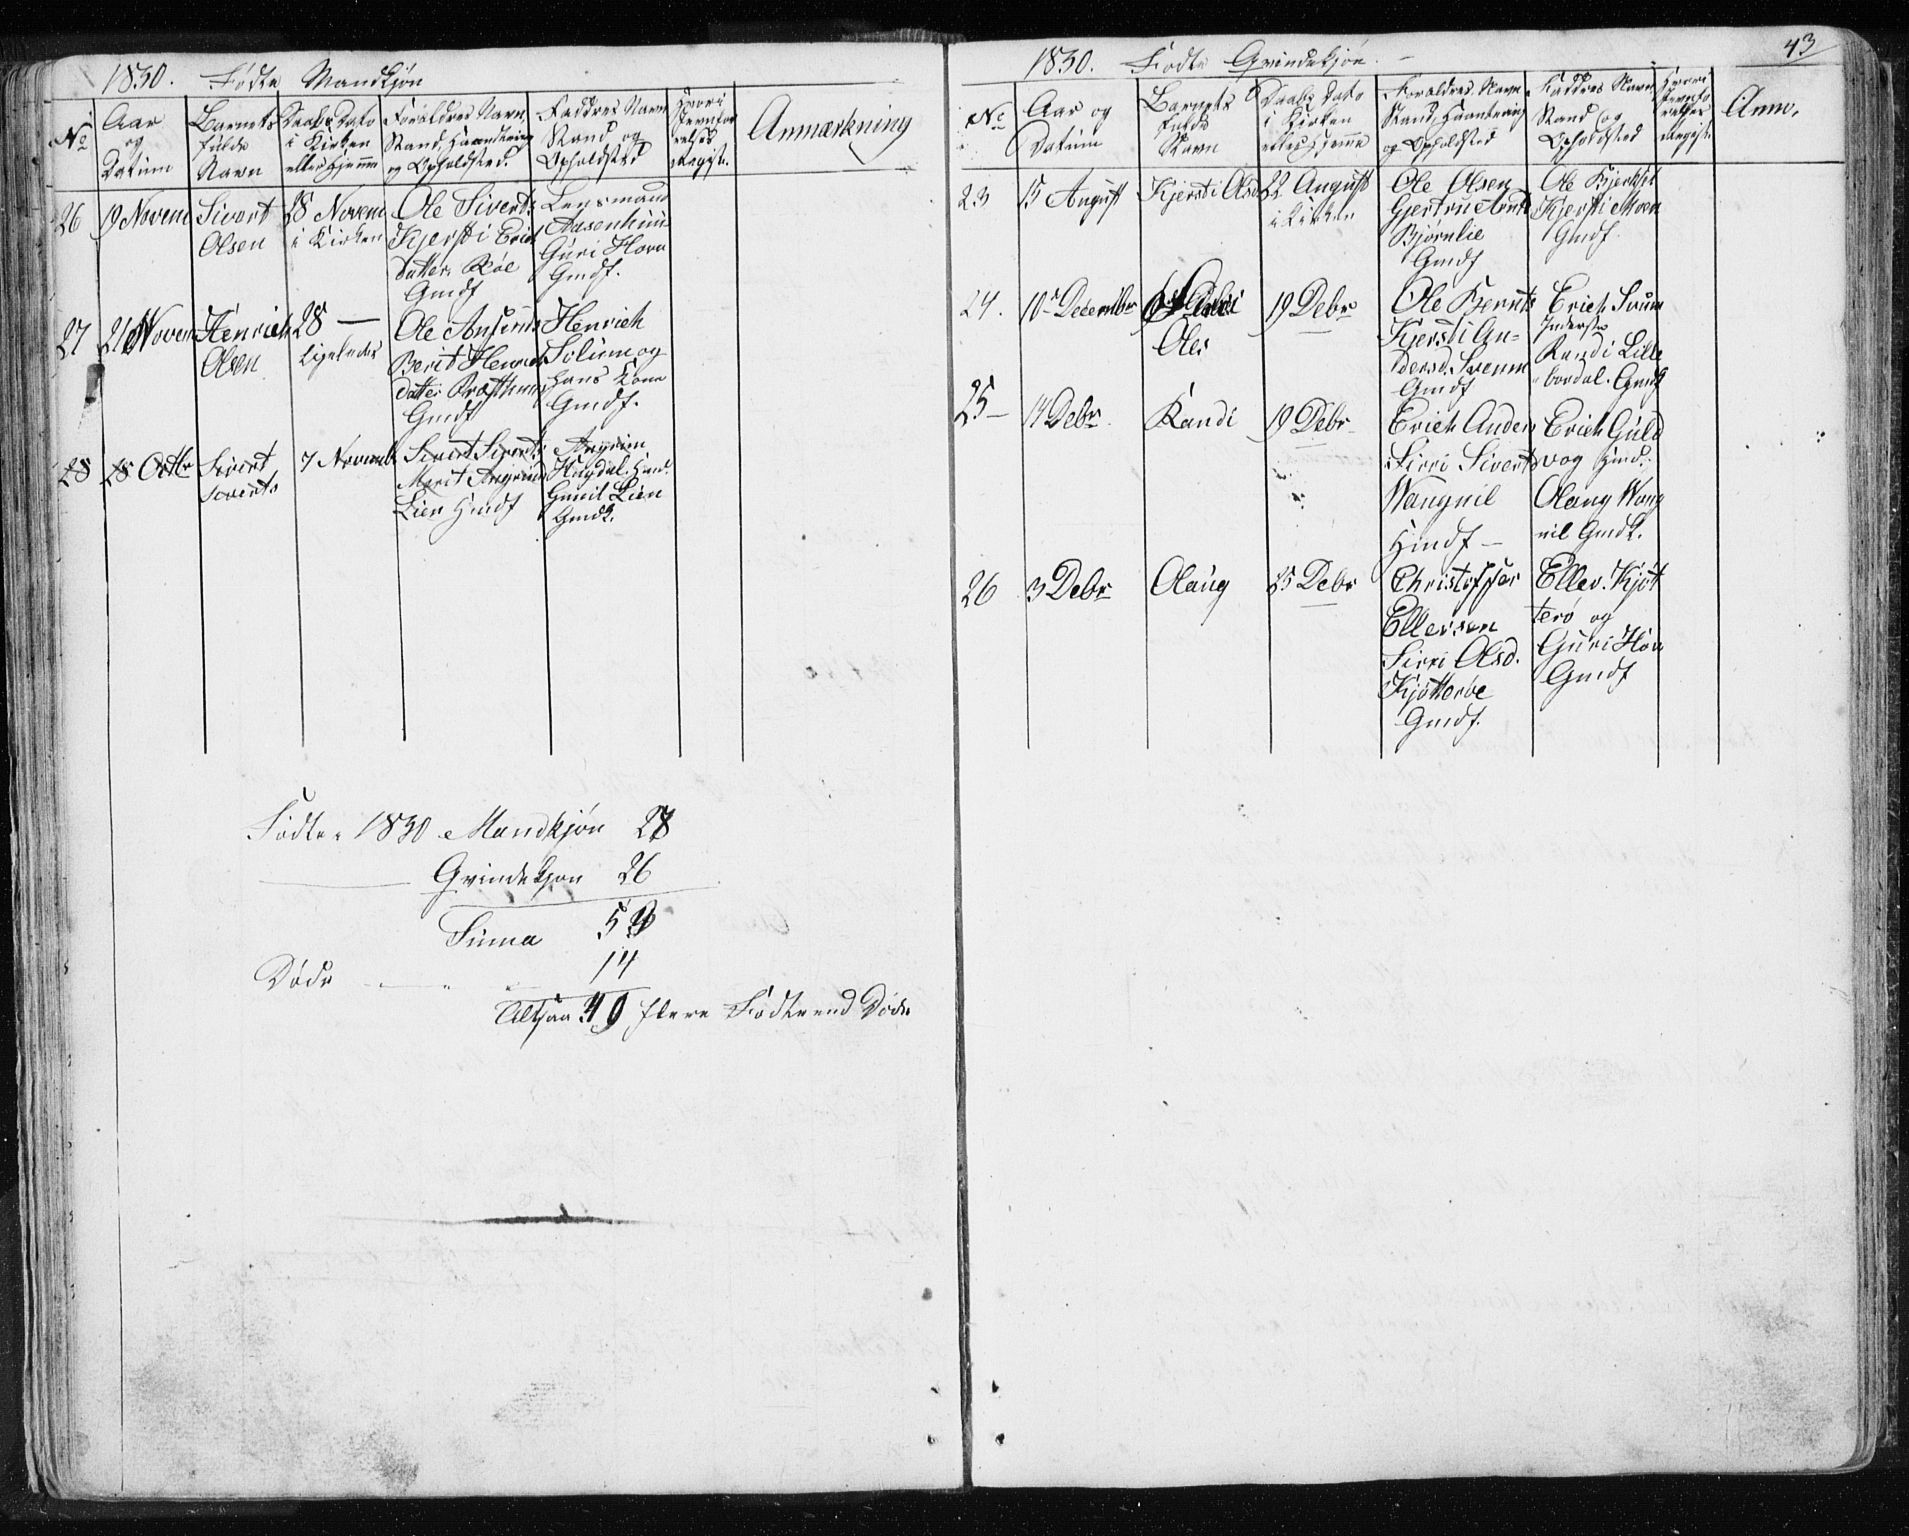 1830. Fødte Mandkjøn
No
Aar
og
Datum
Barnets
fulde
Navn
Daabs Dato
i Kirken
eller Hjemme
Forældres Navn,
Stand, Haandtering
og Opholdsted.
Faddres Navn
Stand og
Opholdsted
Hvori
Anmærkning
26
19 Novem
Sivert
Olsen
28 Novem
i Kirken
Ole Siverts
Kjersti Erics
datter Røe
Gmdf
Lensmand
Aasenhuus
Guri Horn
Gmdf.
27
21 Novem
Henrich
Olsen
28 —
ligeledes
Ole Ansteens
Berit Henrichs
datter Præsthuus
Gmdf
Henrich
Solium og
Hans Kone
Gmdf.
28
28 Octbr
Sivert
Siverts
7 Novemb
Sivert Siverts
Marit Arngrims
Lien Hmdf
Arngrim
Hugdal. Hmd.
Gunil Lien
Gmdk.
Fødte 1830 Mandkjøn 28
Qvindekjøn 26
Suma 54
Døde 14
Altsaa 40 flere Fødte end Døde
43
1830. Fødte Qvindekjøn.
No
Aar og
Datum
Barnets
fulde
Navn
Daabs Dato
i Kirken
eller Hjemme
Forældres Navn
Stand, Haandtering
og Opholdsted
Faddres Navn
Stand og
Opholdsted
Hvori
Anm.
23
15 August
Kjersti Olsd
22 August
i Kirken
Ole Olsen
Gjertru Arnts
Bjørnlie
Gmdf
Ole Bjerkset
Kjersti Moen
Gmdf.
24.
10 December
Ols
19 Debr
Ole Bernts
Kjersti An-
dersd. Svenn
Gmdf
Erich Svenn
Inderst
Randi Lille
bordal. Gmdf
25 —
14 Debr.
Randi
19 Debr
Erich Anders
Sirri Siverts
Wangnil
Hmdf —
Erich Guld
vog Hmd.
Olaug Wang
nil Gmdk.
26
3 Debr
Olaug
25 Debr
Christoffer
Ellevsen
Sirri Olsd.
Kjøtterøe
Gmdf.
Ellev. Kjøt
terø og
Guri Horn
Gmdf